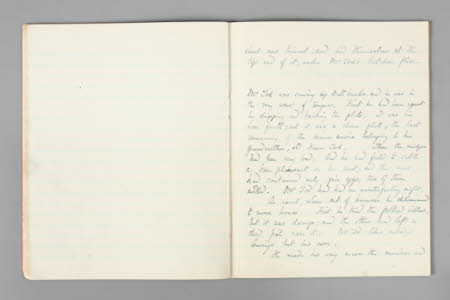 short new tunnel, and hid themselves at the
top end of it, under Mr Tod's kitchen floor.
Mr Tod was coming up Bull banks, and he was in
the very worst of tempers. First he had been upset
by dropping and breaking the plate. It was his
own fault; but it was a china plate, the last
remaining of the dinner service belonging to his
grandmother, old Vixen Tod. Then the midges
had been very bad. And he had failed to catch
a hen pheasant on her nest; and
had contained only five eggs, two of them
addled. Mr Tod had had an unsatisfactory night.
As usual, when out of humour he determined
to move house. First he tried the pollard willow,
but it was damp; and the otters had left a
dead fish near it. Mr Tod likes nobody's
leavings, but his own.
He made his way across the meadow and